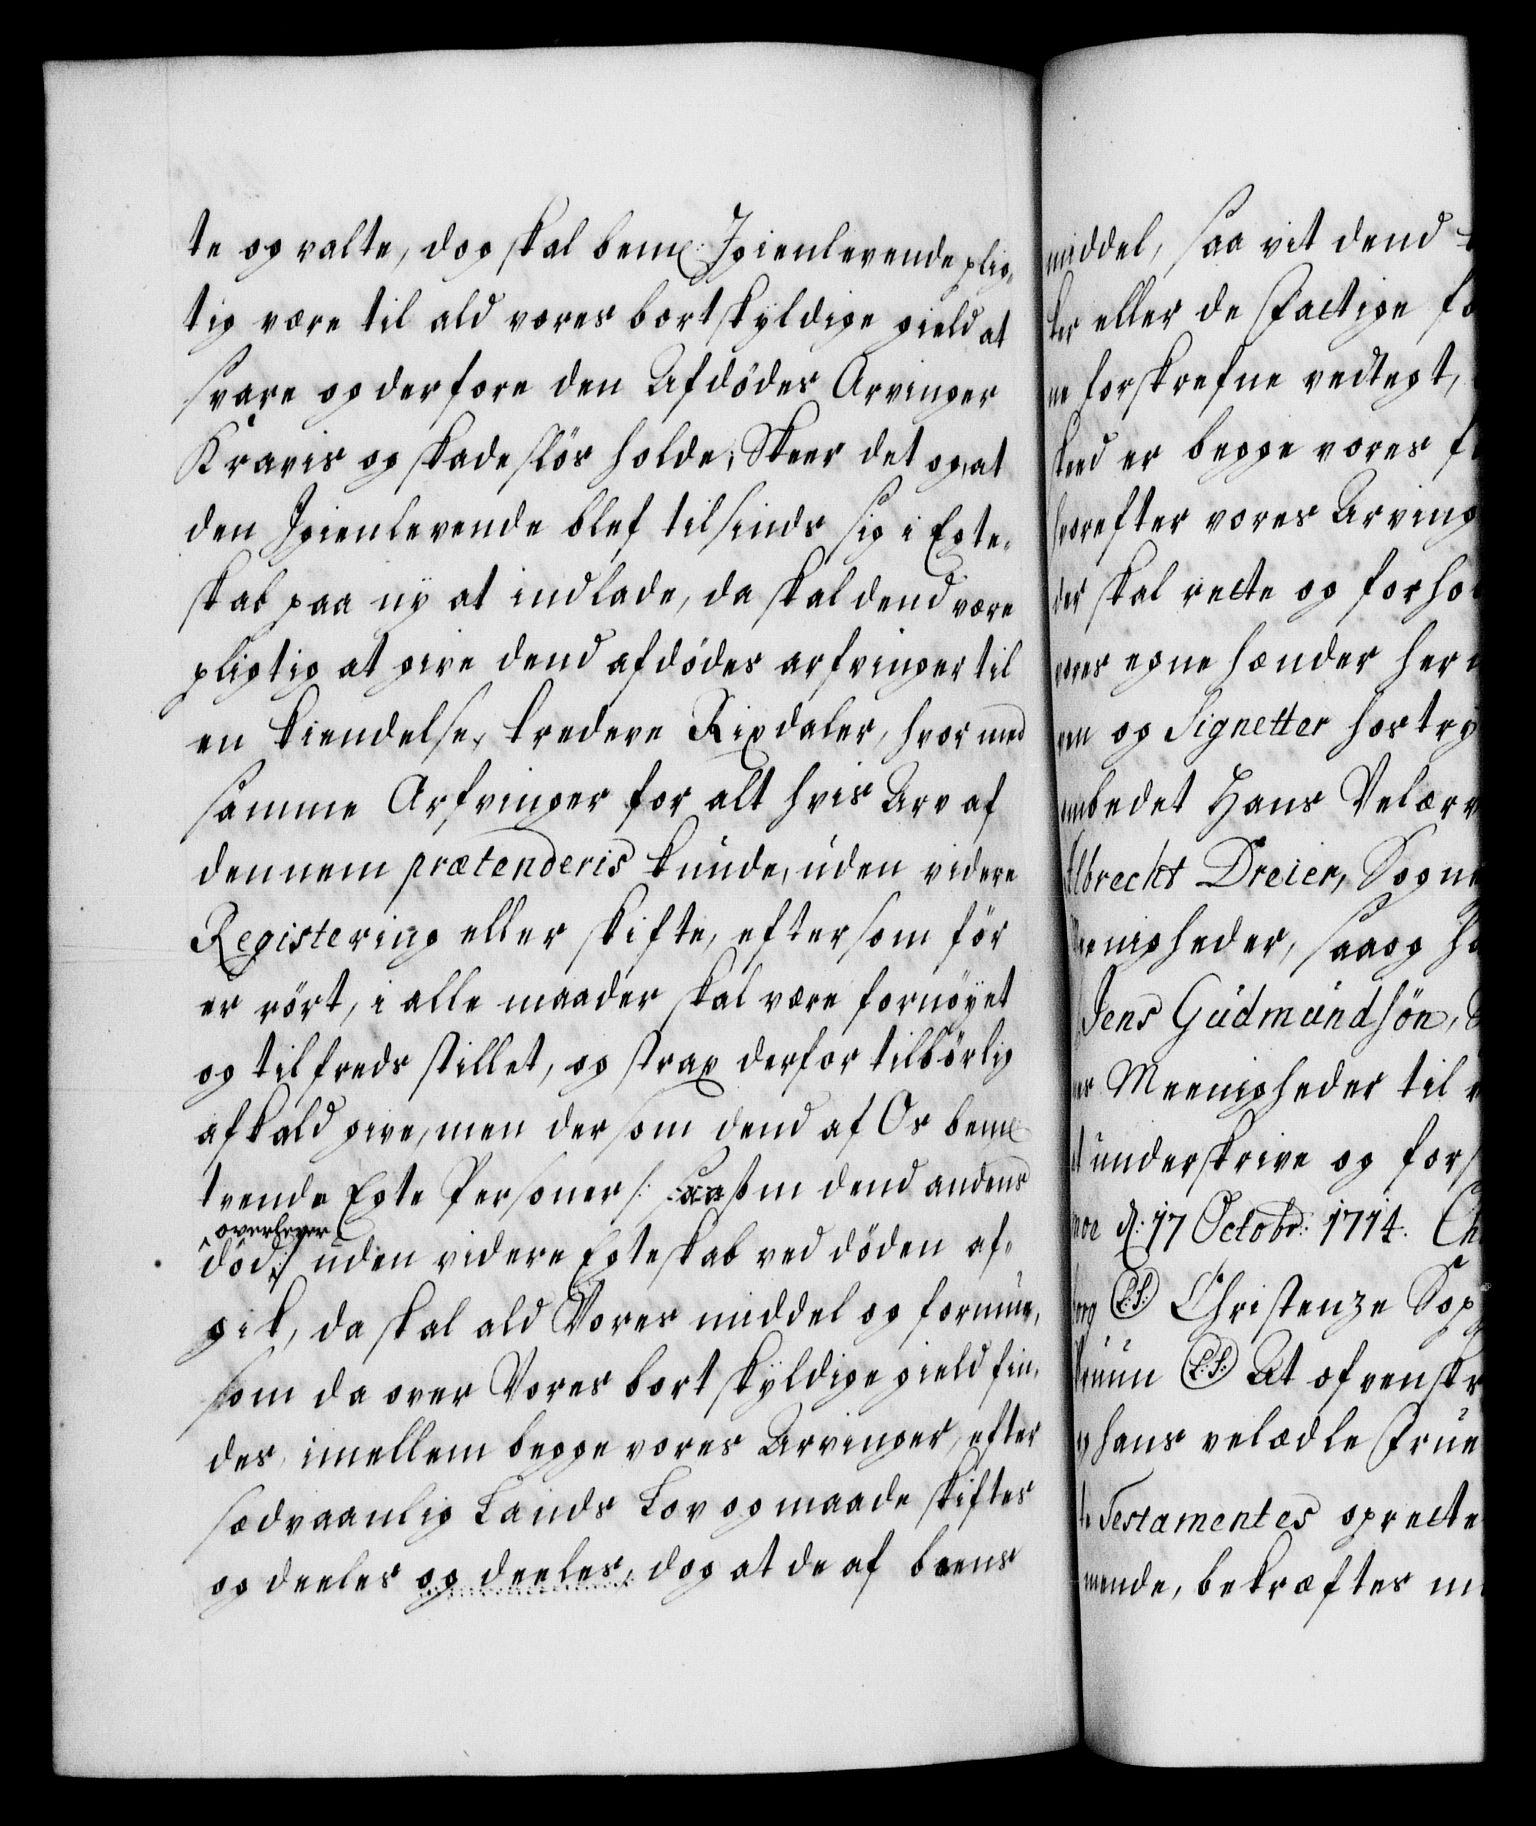 te og valte, dog skal bem: Igienlevende plig-
tig være til ald vores bortskyldige gield at
svare og derfore den Afdödes Arvinger
Kravis og skadeslös holde, Skeer det og, at
den Igienlevende blef tilsinds sig i Egte-
skab paa ny at indlade, da skal dend være
pligtig at give dend afdödes arfvinger til
en kiendelse, tredeve Rixdaler, hvormed
samme Arfvinger for alt hvis Arv af
dennem prætenderis kunde, uden videre
Registering eller skifte, eftersom för
er rört, i alle maader skal være fornöyet
og tilfreds stillet, og strax derfor tilbörlig
afkald give, men dersom dend af Os bem:
tvende Egte Personer /: som dend andens
overlever
död :/ uden videre Egteskab ved döden af-
gik, da skal ald Vores middel og formue,
som da over Vores bortskyldige gield fin-
des, imellem begge vores Arvinger, efter
sædvaanlig Lands Lov og maade skiftes
og deeles og deeles, dog at de af boens
middel, saa vit dend
ker eller de Fattige
ne forskrefne vedtegt,
skeed er begge vores
hvorefter vores Arving
der skal rette og forho
vores egne hænder her
ven og Signetter hostry
ombedet Hans Velærv
Albrecht Dreier, Sogne
Meenigheder, saa og
Jens Gudmundsön,
er Meenigheder til
at underskrive og fors
moe d: 17 Octobr: 1714. Ch
borg (L:S:) Christenze Sop
Bruun (L:S:) At ofvenskr
og hans velædle Frue
te Testamentes oprette
mende, bekræftes